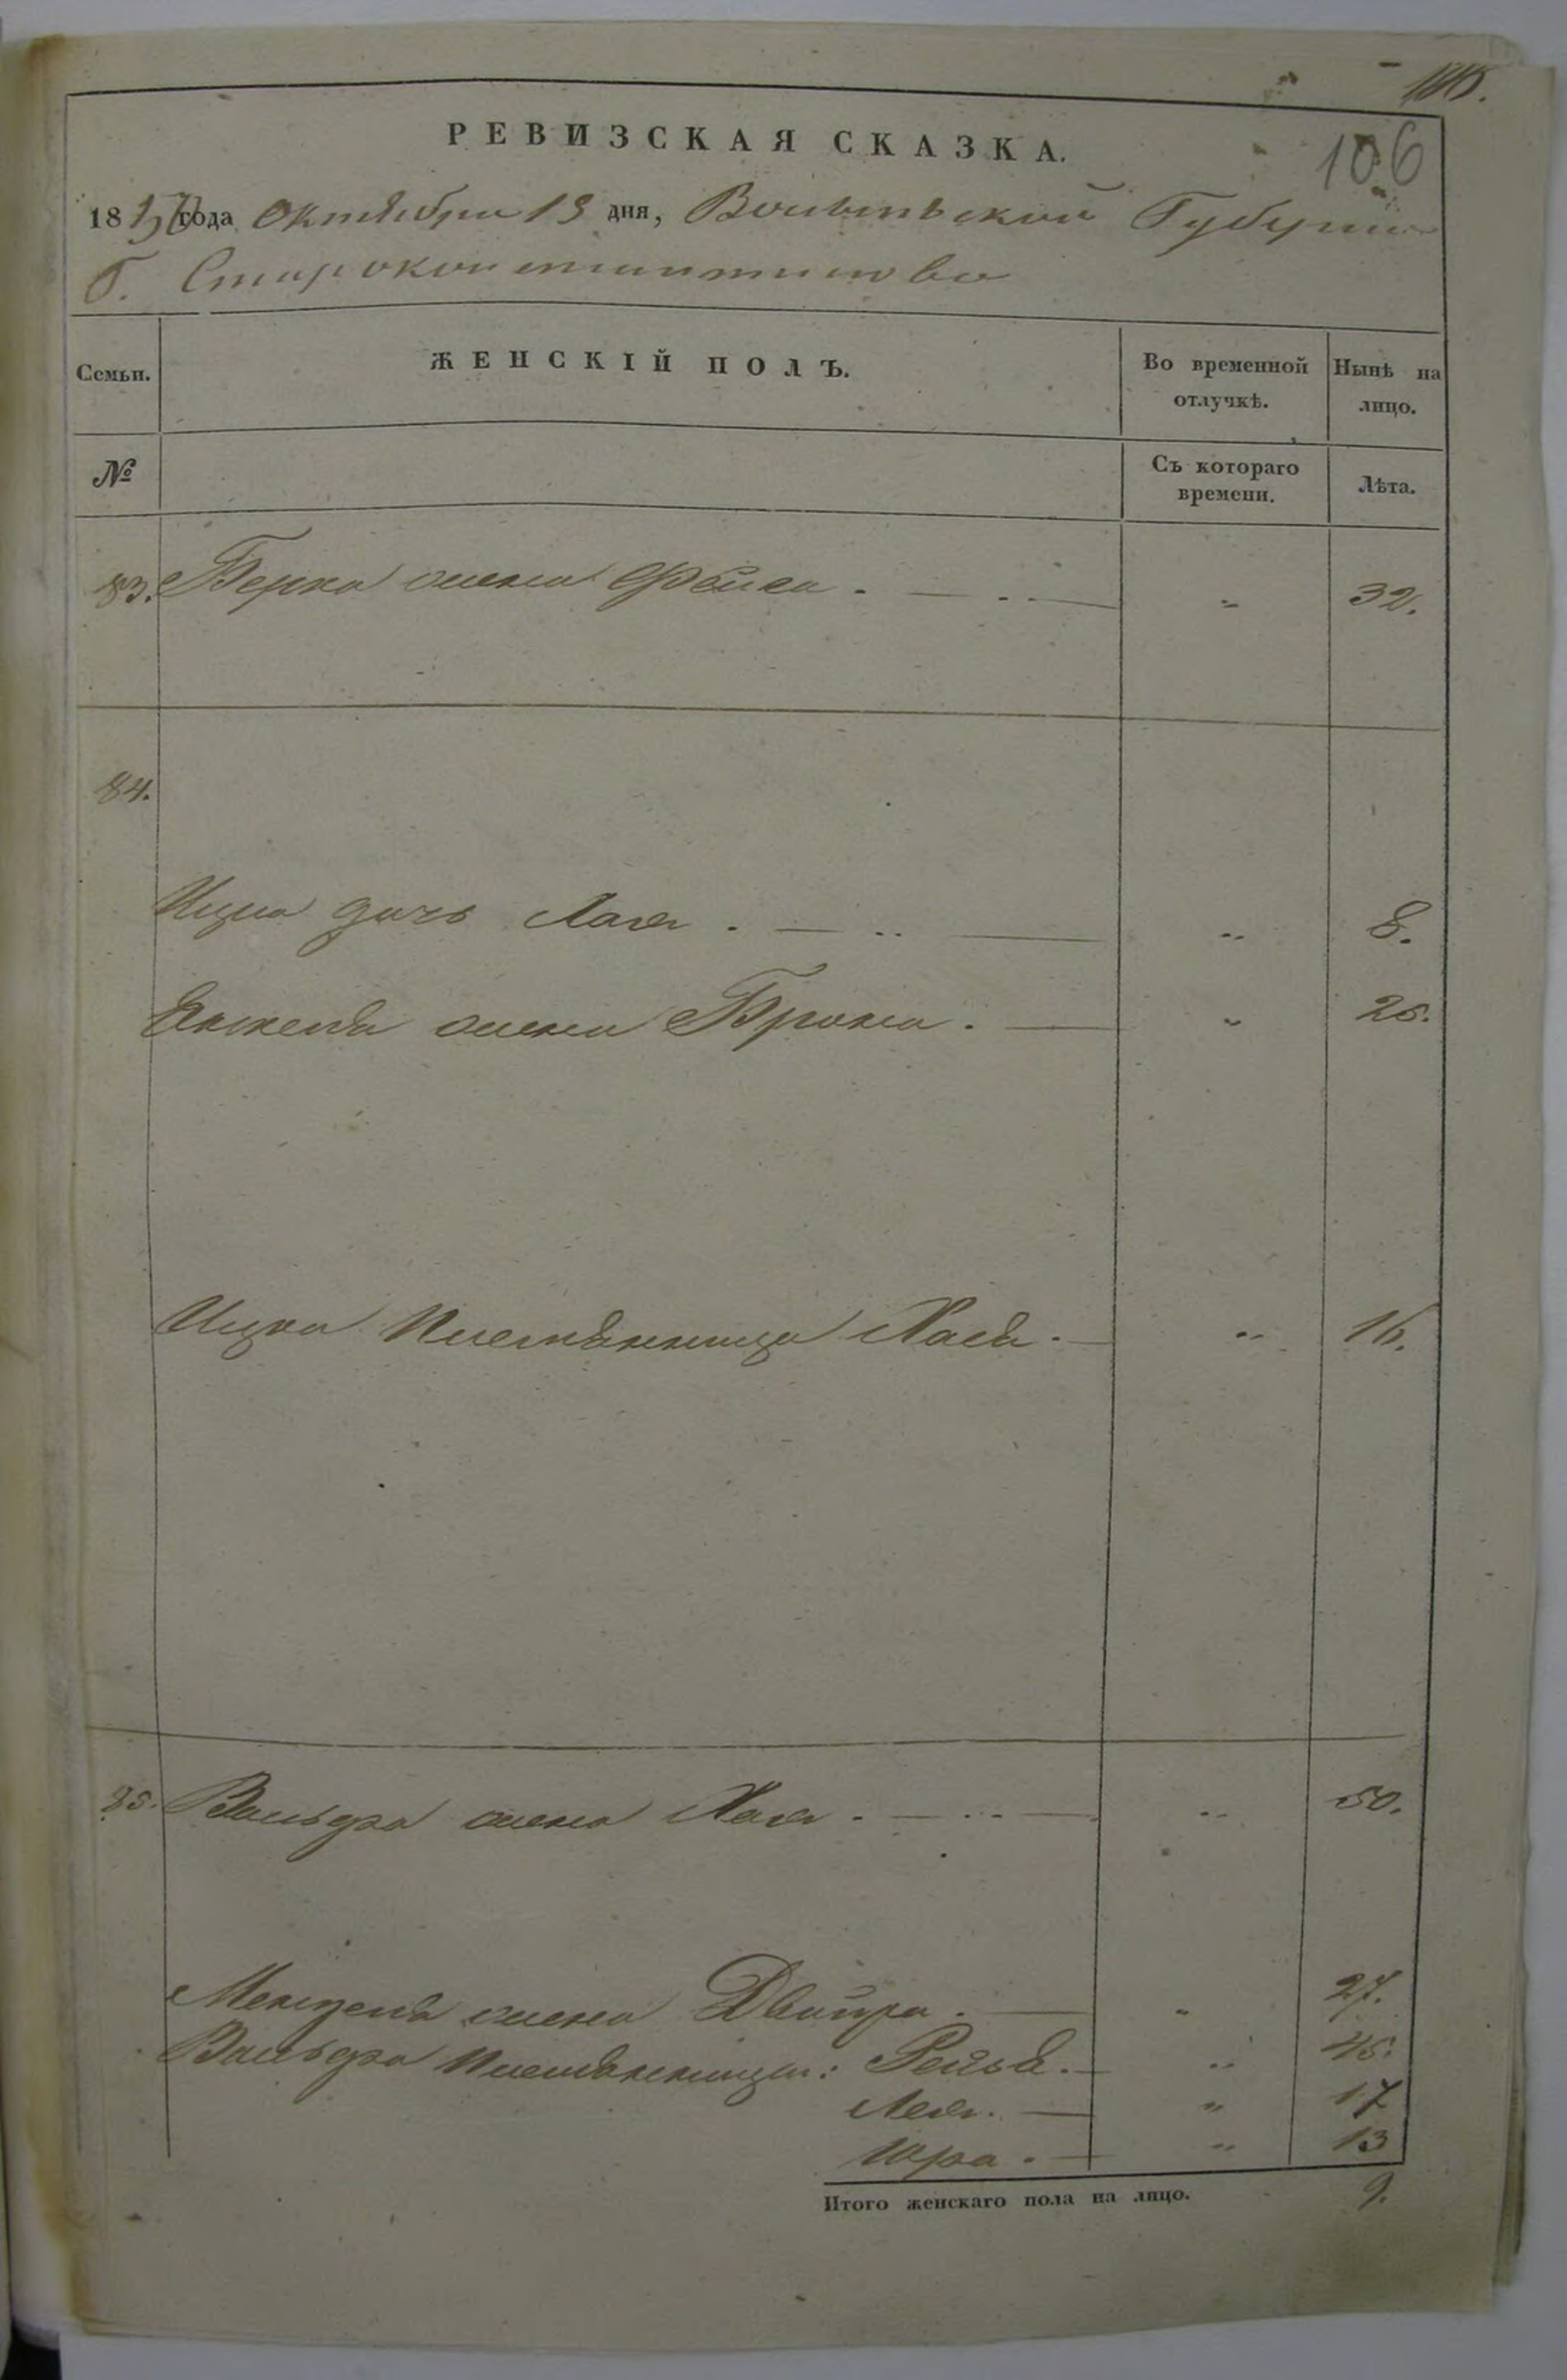 106
РЕВИЗСКАЯ СКАЗКА.
1850 года Октября 13 дня, Волынской Губернии
Г. Староконстантинова
Семьи.
ЖЕНСКІЙ ПОЛЪ.
Во временной отлучкѣ.
Нынѣ на лицо.
№
Съ котораго времени.
Лѣта.
83. Берка жена Фейга . — .. — " 32.
84.
Ицка дочь Лая . — .. — " 8.
жена Брана . — " 26.
Ицка Племянница Хася . — " 16.
85. Вольфа жена Хая . — .. — " 50.
Менделя жена Двойра . — " 27.
Вольфа Племянницы: Рейзя . — "
Лея . — " 17
— " 13
Итого женскаго пола на лицо. 9.